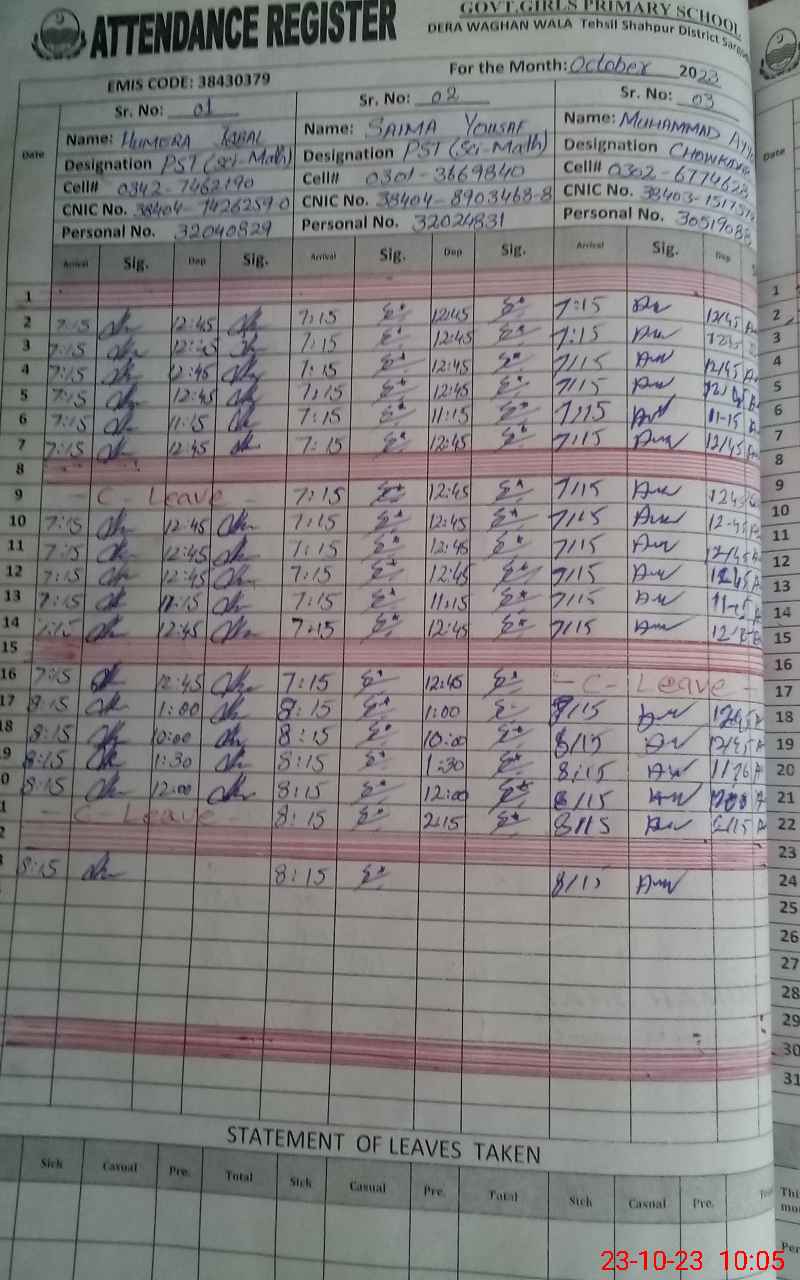 ATTENDANCE REGISTER
GOVT.GIRLS PRIMARY SCHOOL
DERA WAGHAN WALA Tehsil Shahpur District
EMIS CODE: 38430379
For the Month: October 2023
Sr. No: 01 Sr. No: 02 Sr. No: 03
Name: HUMERA IQBAL Name: SAIMA YOUSAF Name: MUHAMMAD
Designation PST (Sci-Math) Designation PST (Sci-Math) Designation
Cell# 0342-7462190 Cell# 0301-3669840 Cell# 0302-6774628
CNIC No. 38404-7426259-0 CNIC No. 38404-8903468-8 CNIC No.
Personal No. 32040829 Personal No. 32024831 Personal No. 30519088
Date Arrival Sig. Dep Sig. Arrival Sig. Dep Sig. Arrival Sig. Dep Date
1 1
2 7:15 12:45 7:15 12:45 7:15 12/45 2
3 7:15 12:45 7:15 12:45 7:15 3
4 7:15 12:45 7:15 12:45 7/15 12/45 4
5 7:15 12:45 7:15 12:45 7/15 5
6 7:15 11:15 7:15 11:15 7/15 11-15 6
7 7:15 12:45 7:15 12:45 7/15 12/45 7
8 8
9 - C Leave - 7:15 12:45 7/15 9
10 7:15 12:45 7:15 12:45 7/15 10
11 7:15 12:45 7:15 12:45 7/15 12/45 11
12 7:15 12:45 7:15 12:45 7/15 12
13 7:15 11:15 7:15 11:15 7/15 13
14 7:15 12:45 7:15 12:45 7/15 14
15 15
16 7:15 12:45 7:15 12:45 - C - Leave - 16
17 8:15 1:00 8:15 1:00 8/15 17
18 8:15 10:00 8:15 10:00 8/15 12/45 18
9 8:15 1:30 8:15 1:30 8/15 19
0 8:15 12:00 8:15 12:00 8/15 20
1 - C - Leave - 8:15 2:15 8/15 21
2 22
8:15 8:15 8/15 23
24
25
26
27
28
29
30
31
STATEMENT OF LEAVES TAKEN
Sick Casual Pre. Total Sick Casual Pre. Total Sick Casual Pre.
23-10-23 10:05